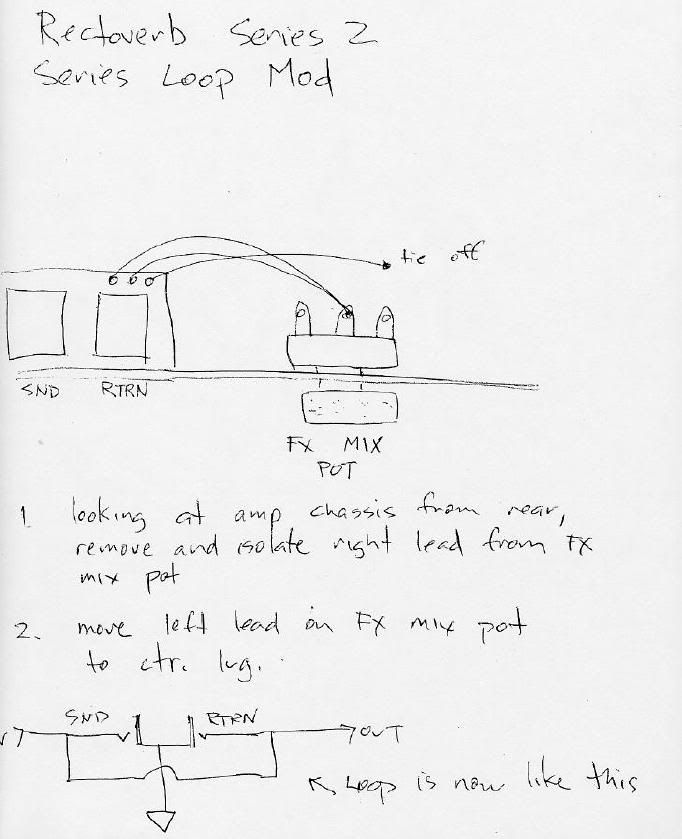 Rectoverb Series 2
Series Loop Mod
tie off
SND RTRN
FX MIX
POT
1 looking at amp chassis from rear,
remove and isolate right lead from FX
mix pot
2. move left lead on FX mix pot
to ctr. lug.
SND RTRN
OUT
Loop is now like this